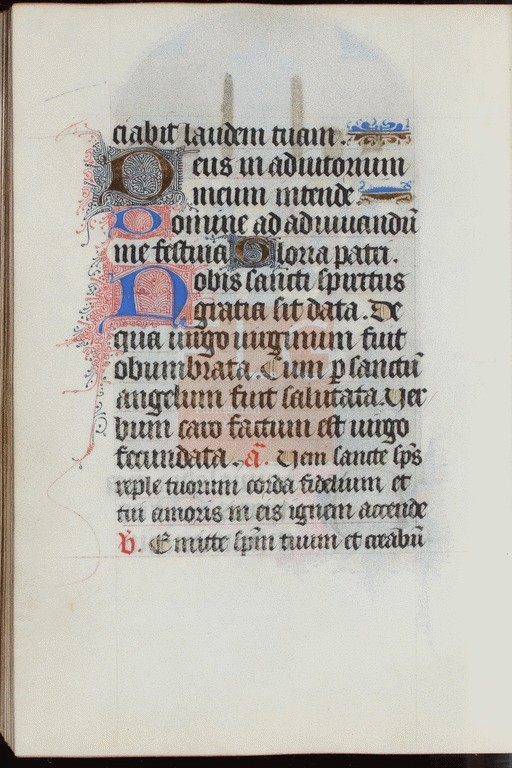 ciabit laudem tuam.
Deus in adiutorium
meum intende
Domine ad adiuuandū
me festina Gloria patri.
Nobis sancti spiritus
gratia sit data. De
qua uirgo uirginum fuit
obumbrata. Cum p sanctū
angelum fuit salutata. Ver
bum caro factum est uirgo
fecundata. ā. Veni sancte sp̄s
reple tuorum corda fidelium et
tui amoris in eis ignem accende
V̄. Emitte sp̄m tuum et creabū